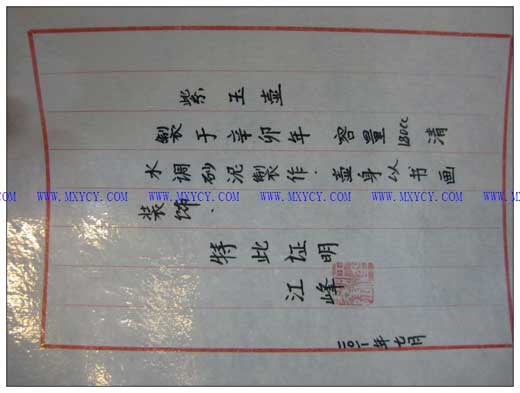 紫玉壶
製于辛卯年 容量180cc 清
水调砂泥製作．壶身以书画
装饰．
特此证明
江峰
二〇一一年七月
WWW.MXYCY.COM WWW.MXYCY.COM WWW.MXYCY.COM WWW.MXYCY.COM WWW.MXYCY.COM